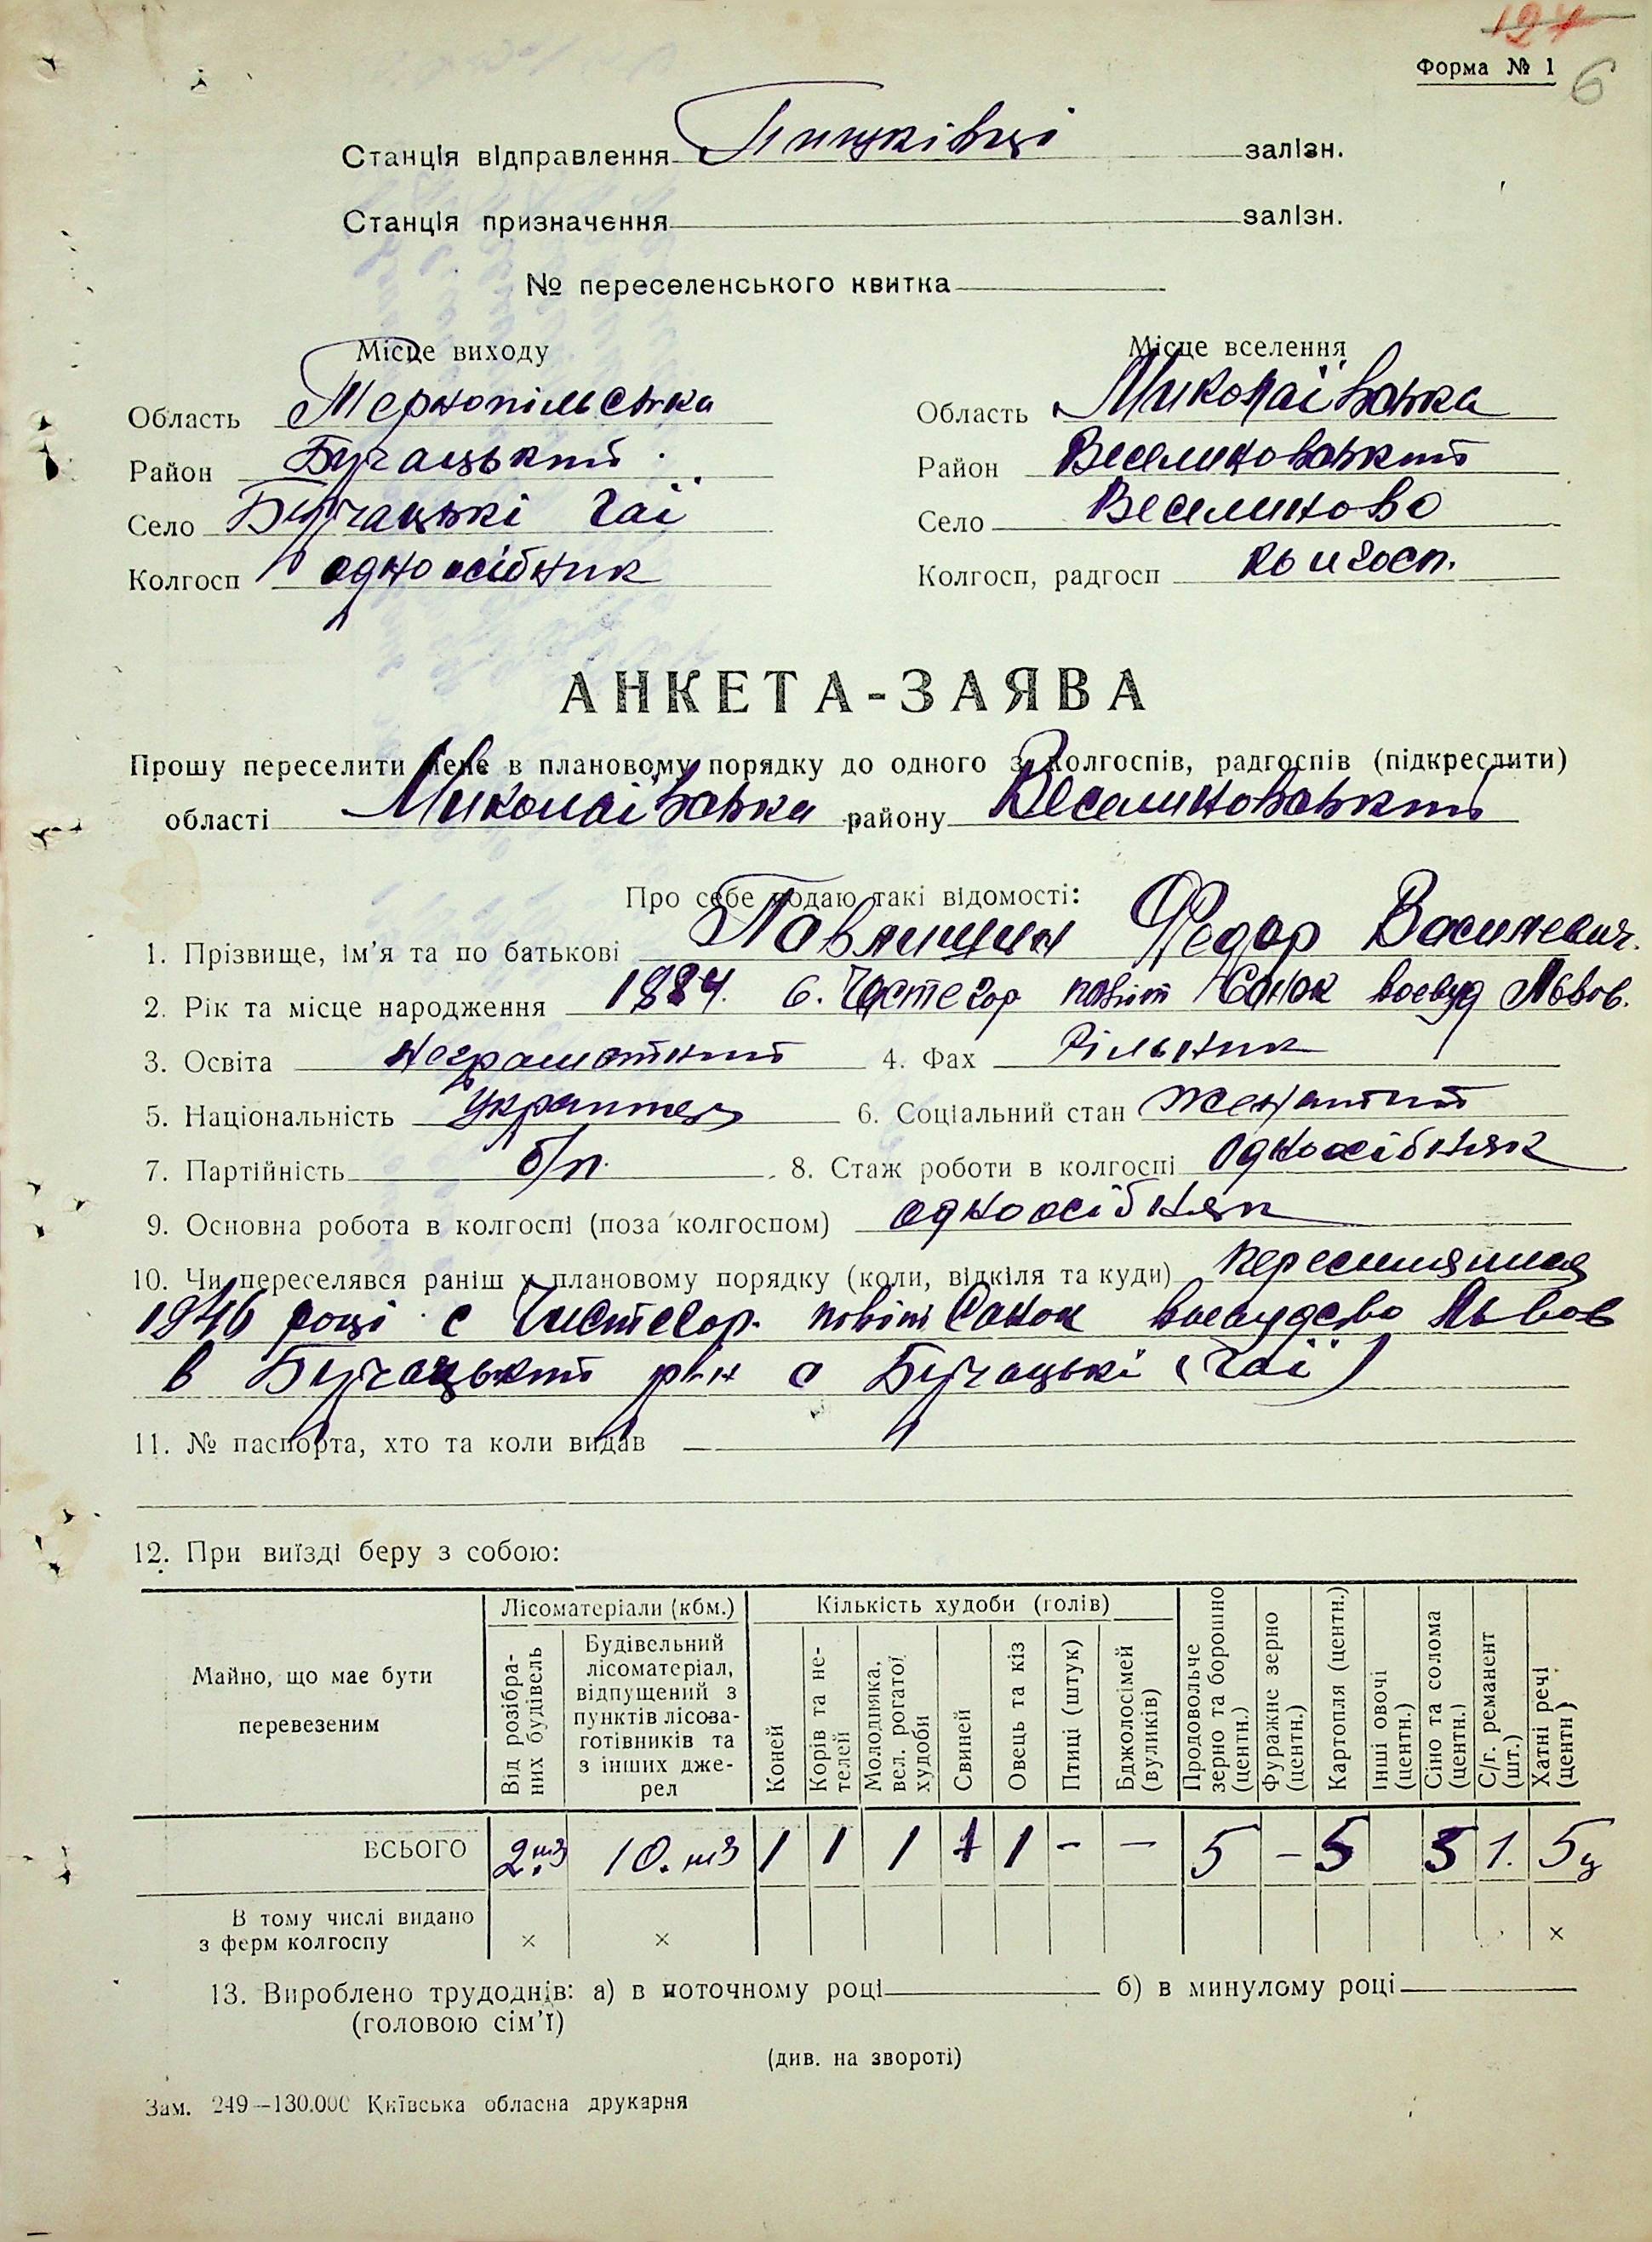 124
Форма № 1
6
Станція відправлення Пишківці залізн.
Станція призначення залізн.
№ переселенського квитка
Місце виходу
Місце вселення
Область Тернопільська
Область Миколаївська
Район Бучацький
Район Веселиновський
Село Бучацькі Гаї
Село Веселиново
Колгосп одноосібник
Колгосп, радгосп
АНКЕТА-ЗАЯВА
Прошу переселити мене в плановому порядку до одного з колгоспів, радгоспів (підкреслити)
області Миколаївська району Веселиновський
Про себе подаю такі відомості:
1. Прізвище, ім'я та по батькові Павлищин Федор Василевич.
2. Рік та місце народження 1884. с. повіт Санок воєвуд Львов.
3. Освіта неграмотний 4. Фах Рільник
5. Національність Українець 6. Соціальний стан Женатий
7. Партійність б/п. 8. Стаж роботи в колгоспі Одноосібняк
9. Основна робота в колгоспі (поза колгоспом) одноосібняк
10. Чи переселявся раніш у плановому порядку (коли, відкіля та куди)
1946 році с повіт Санок воєвудсво Львов
в Бучацький р-н с Бучацькі (Гаї)
11. № паспорта, хто та коли видав
12. При виїзді беру з собою:
Майно, що має бути перевезеним
Лісоматеріали (кбм.)
Кількість худоби (голів)
Від розібраних будівель
Будівельний лісоматеріал, відпущений з пунктів лісозаготівників та з інших джерел
Коней
Корів та нетелей
Молодняка, вел. рогатої худоби
Свиней
Овець та кіз
Птиці (штук)
Бджолосімей (вуликів)
Продовольче зерно та борошно (центн.)
Фуражне зерно (центн.)
Картопля (центн.)
Інші овочі (центн.)
Сіно та солома (центн.)
С/г. реманент (шт.)
Хатні речі (центн)
ВСЬОГО 2 м3 10. м3 1 1 1 1 1 - - 5 - 5 3 1. 5 ц
В тому числі видано
з ферм колгоспу × × ×
13. Вироблено трудоднів: а) в поточному році б) в минулому році
(головою сім'ї)
(див. на звороті)
Зам. 249—130.000 Київська обласна друкарня